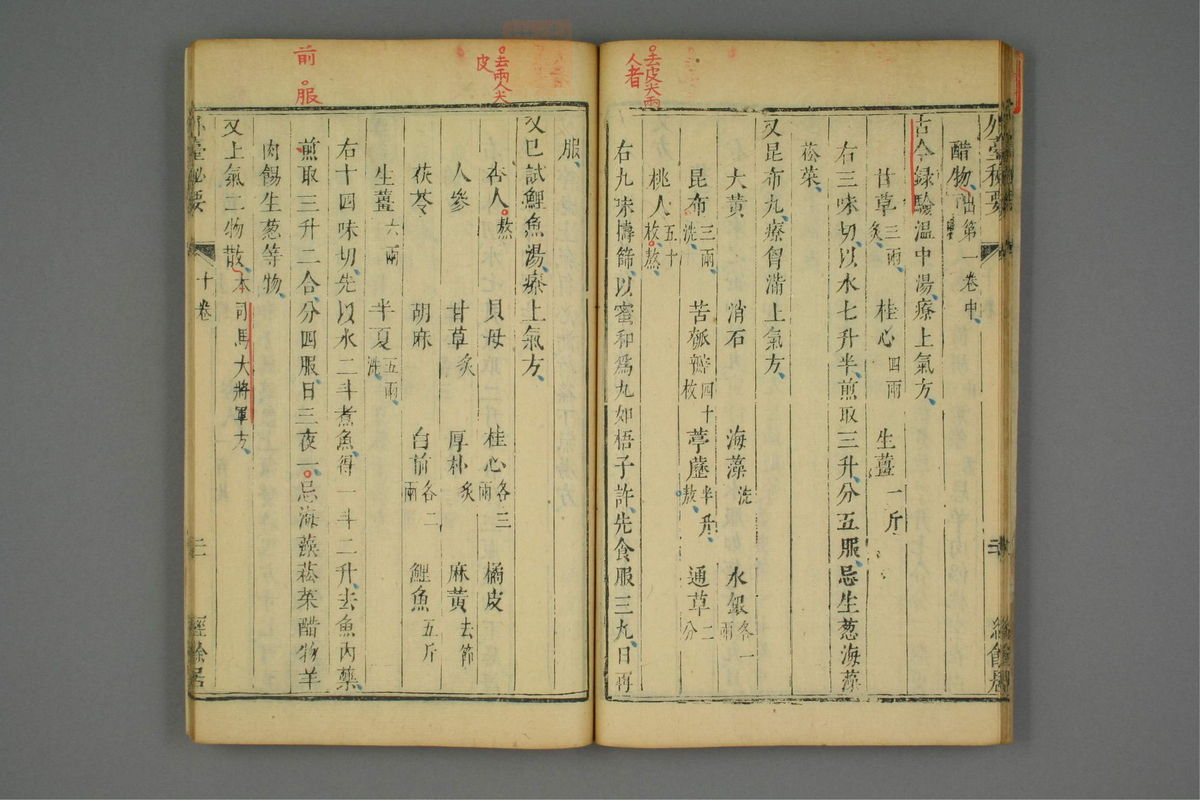 去皮尖兩
人者
外臺秘要
醋物出第一卷中
古今録驗溫中湯療上氣方
甘草三兩炙 桂心四兩 生薑一斤
右三味切以水七升半煎取三升分五服忌生葱海藻
菘菜
又昆布丸療胷滿上氣方
大黃 消石 海藻洗 水銀各一兩
昆布三兩洗 苦瓠瓣四十枚 葶藶半升熬 通草二分
桃人五十枚熬
右九味擣篩以蜜和爲丸如梧子許先食服三丸日再
去兩人尖
皮
前
服
服
又巳試鯉魚湯療上氣方
杏人熬 貝母 桂心各三兩 橘皮
人參 甘草炙 厚朴炙 麻黃去節
茯苓 胡麻 白前各二兩 鯉魚五斤
生薑六兩 半夏五兩洗
右十四味切先以水二斗煮魚得一斗二升去魚內藥
煎取三升二合分四服日三夜一忌海藻菘菜醋物羊
肉餳生葱等物
又上氣二物散本司馬大將軍方
外臺秘要 十卷 二 經餘居